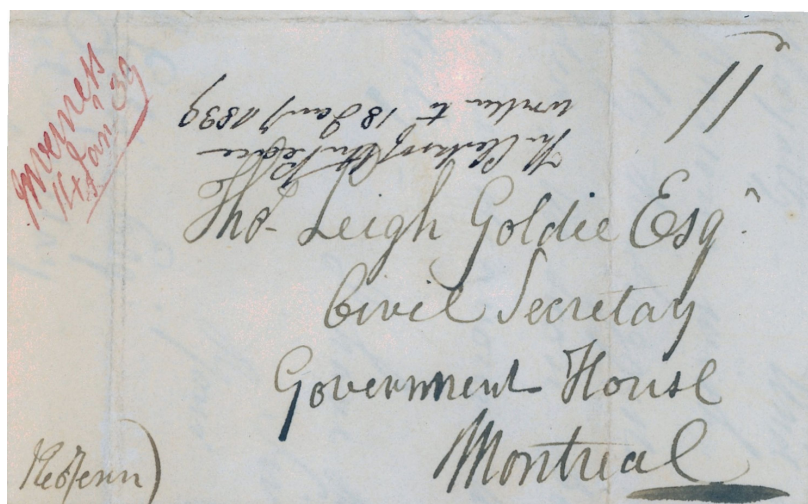 Inverness
14th Jany 39
11
written to 18 Jany 1839
Tho- Leigh Goldie Esqr
Civil Secretay
Government House
Montreal